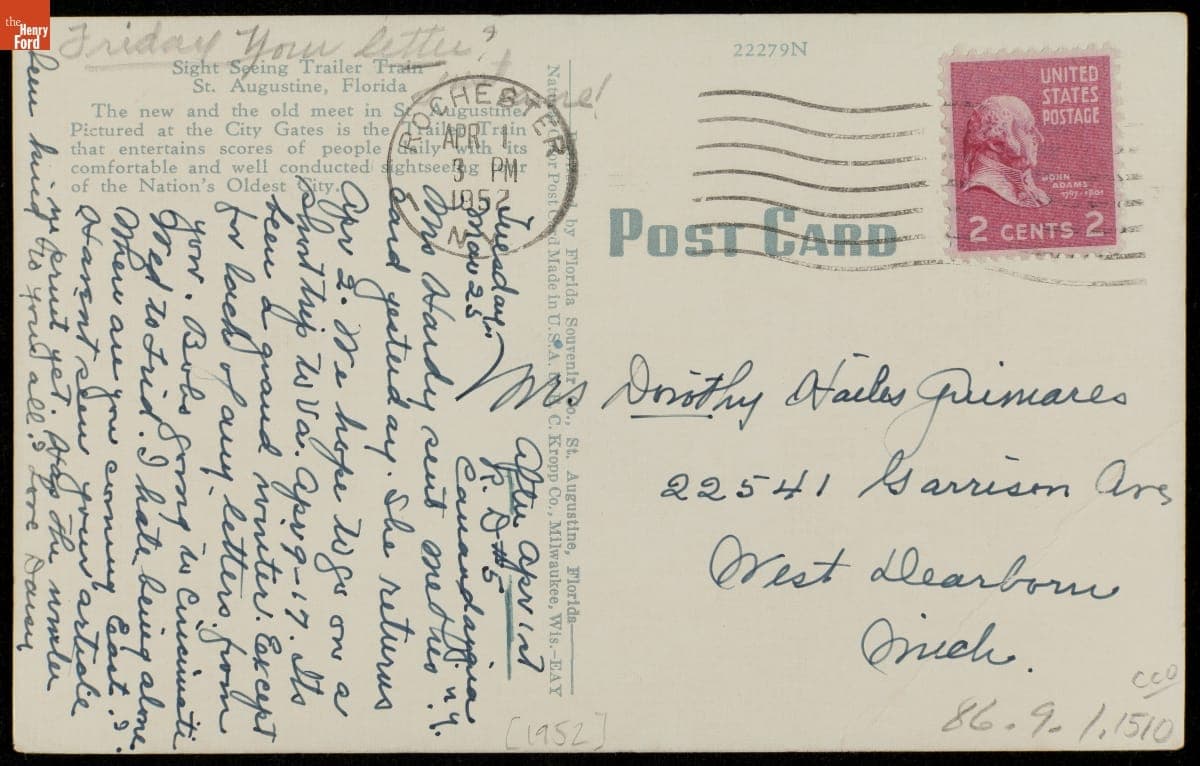 the
Henry
Ford
Friday Your letter
Sight Seeing Trailer Train
St. Augustine, Florida
The new and the old meet in St. Augustine.
Pictured at the City Gates is the Trailer Train
that entertains scores of people daily with its
comfortable and well conducted sightseeing
of the Nation's Oldest City.
22279N
ROCHESTER
APR 1
3 PM
1952
N.Y.
UNITED
STATES
POSTAGE
JOHN
ADAMS
1797-1801
2 CENTS 2
POST CARD
by Florida Souvenir Co., St. Augustine, Florida
Made in U.S.A. C. Kropp Co., Milwaukee, Wis.—EAY
Tuesday
Mar 25
After Apr 1st
R. D #5
Canandaigua N.Y.
Mrs Hardy sent me this
card yesterday. She returns
Apr 2. We hope to go on a
short trip to Va. Apr 9-17. Its
been a grand winter! Except
for lack of any letters from
you. Bobs going to Cincinnati
Wed to Frid. I hate being alone.
When are you coming East?
Havent seen your article
in print yet. Has the winter
been kind to you all? Love Danny
Mrs Dorothy Hailes Grimares
22541 Garrison Ave
West Dearborn
Mich.
cco
86.9.1.1510
[1952]